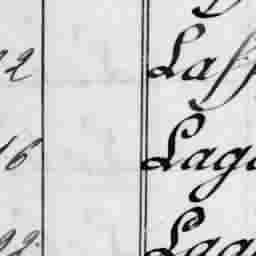 22 Laff
16 Lage
22. Lag